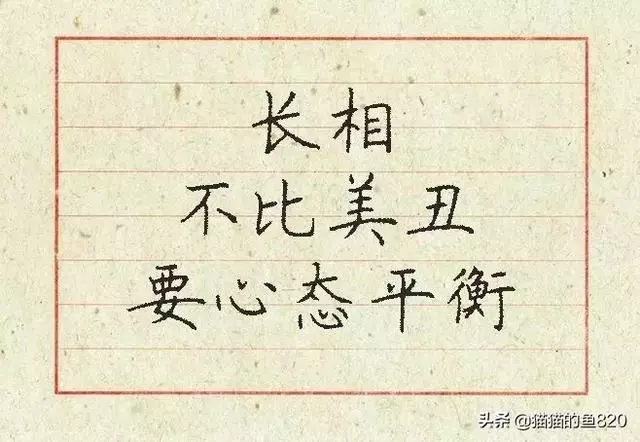 长相
不比美丑
要心态平衡
头条 @猫猫的鱼820